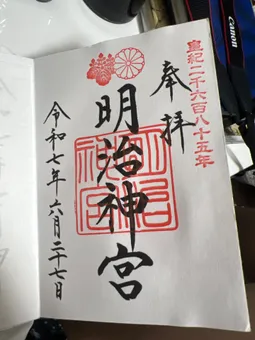 皇紀二千六百八十五年
奉拝
明治神宮
明治神宮
令和七年六月二十七日
Canon